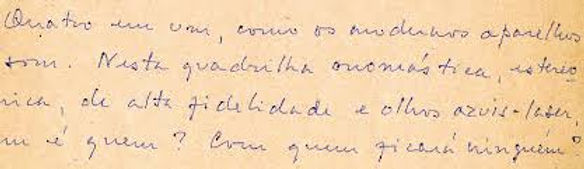 Quatro em um, como os modernos aparelhos
som. Nesta quadrilha onomástica, estereo
nica, de alta fidelidade e olhos azuis-laser,
m é quem? Com quem ficará ninguém?